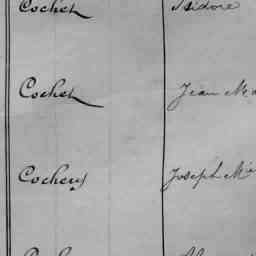 Cochet Isidore
Cochet Jean Ma
Cocheux Joseph M